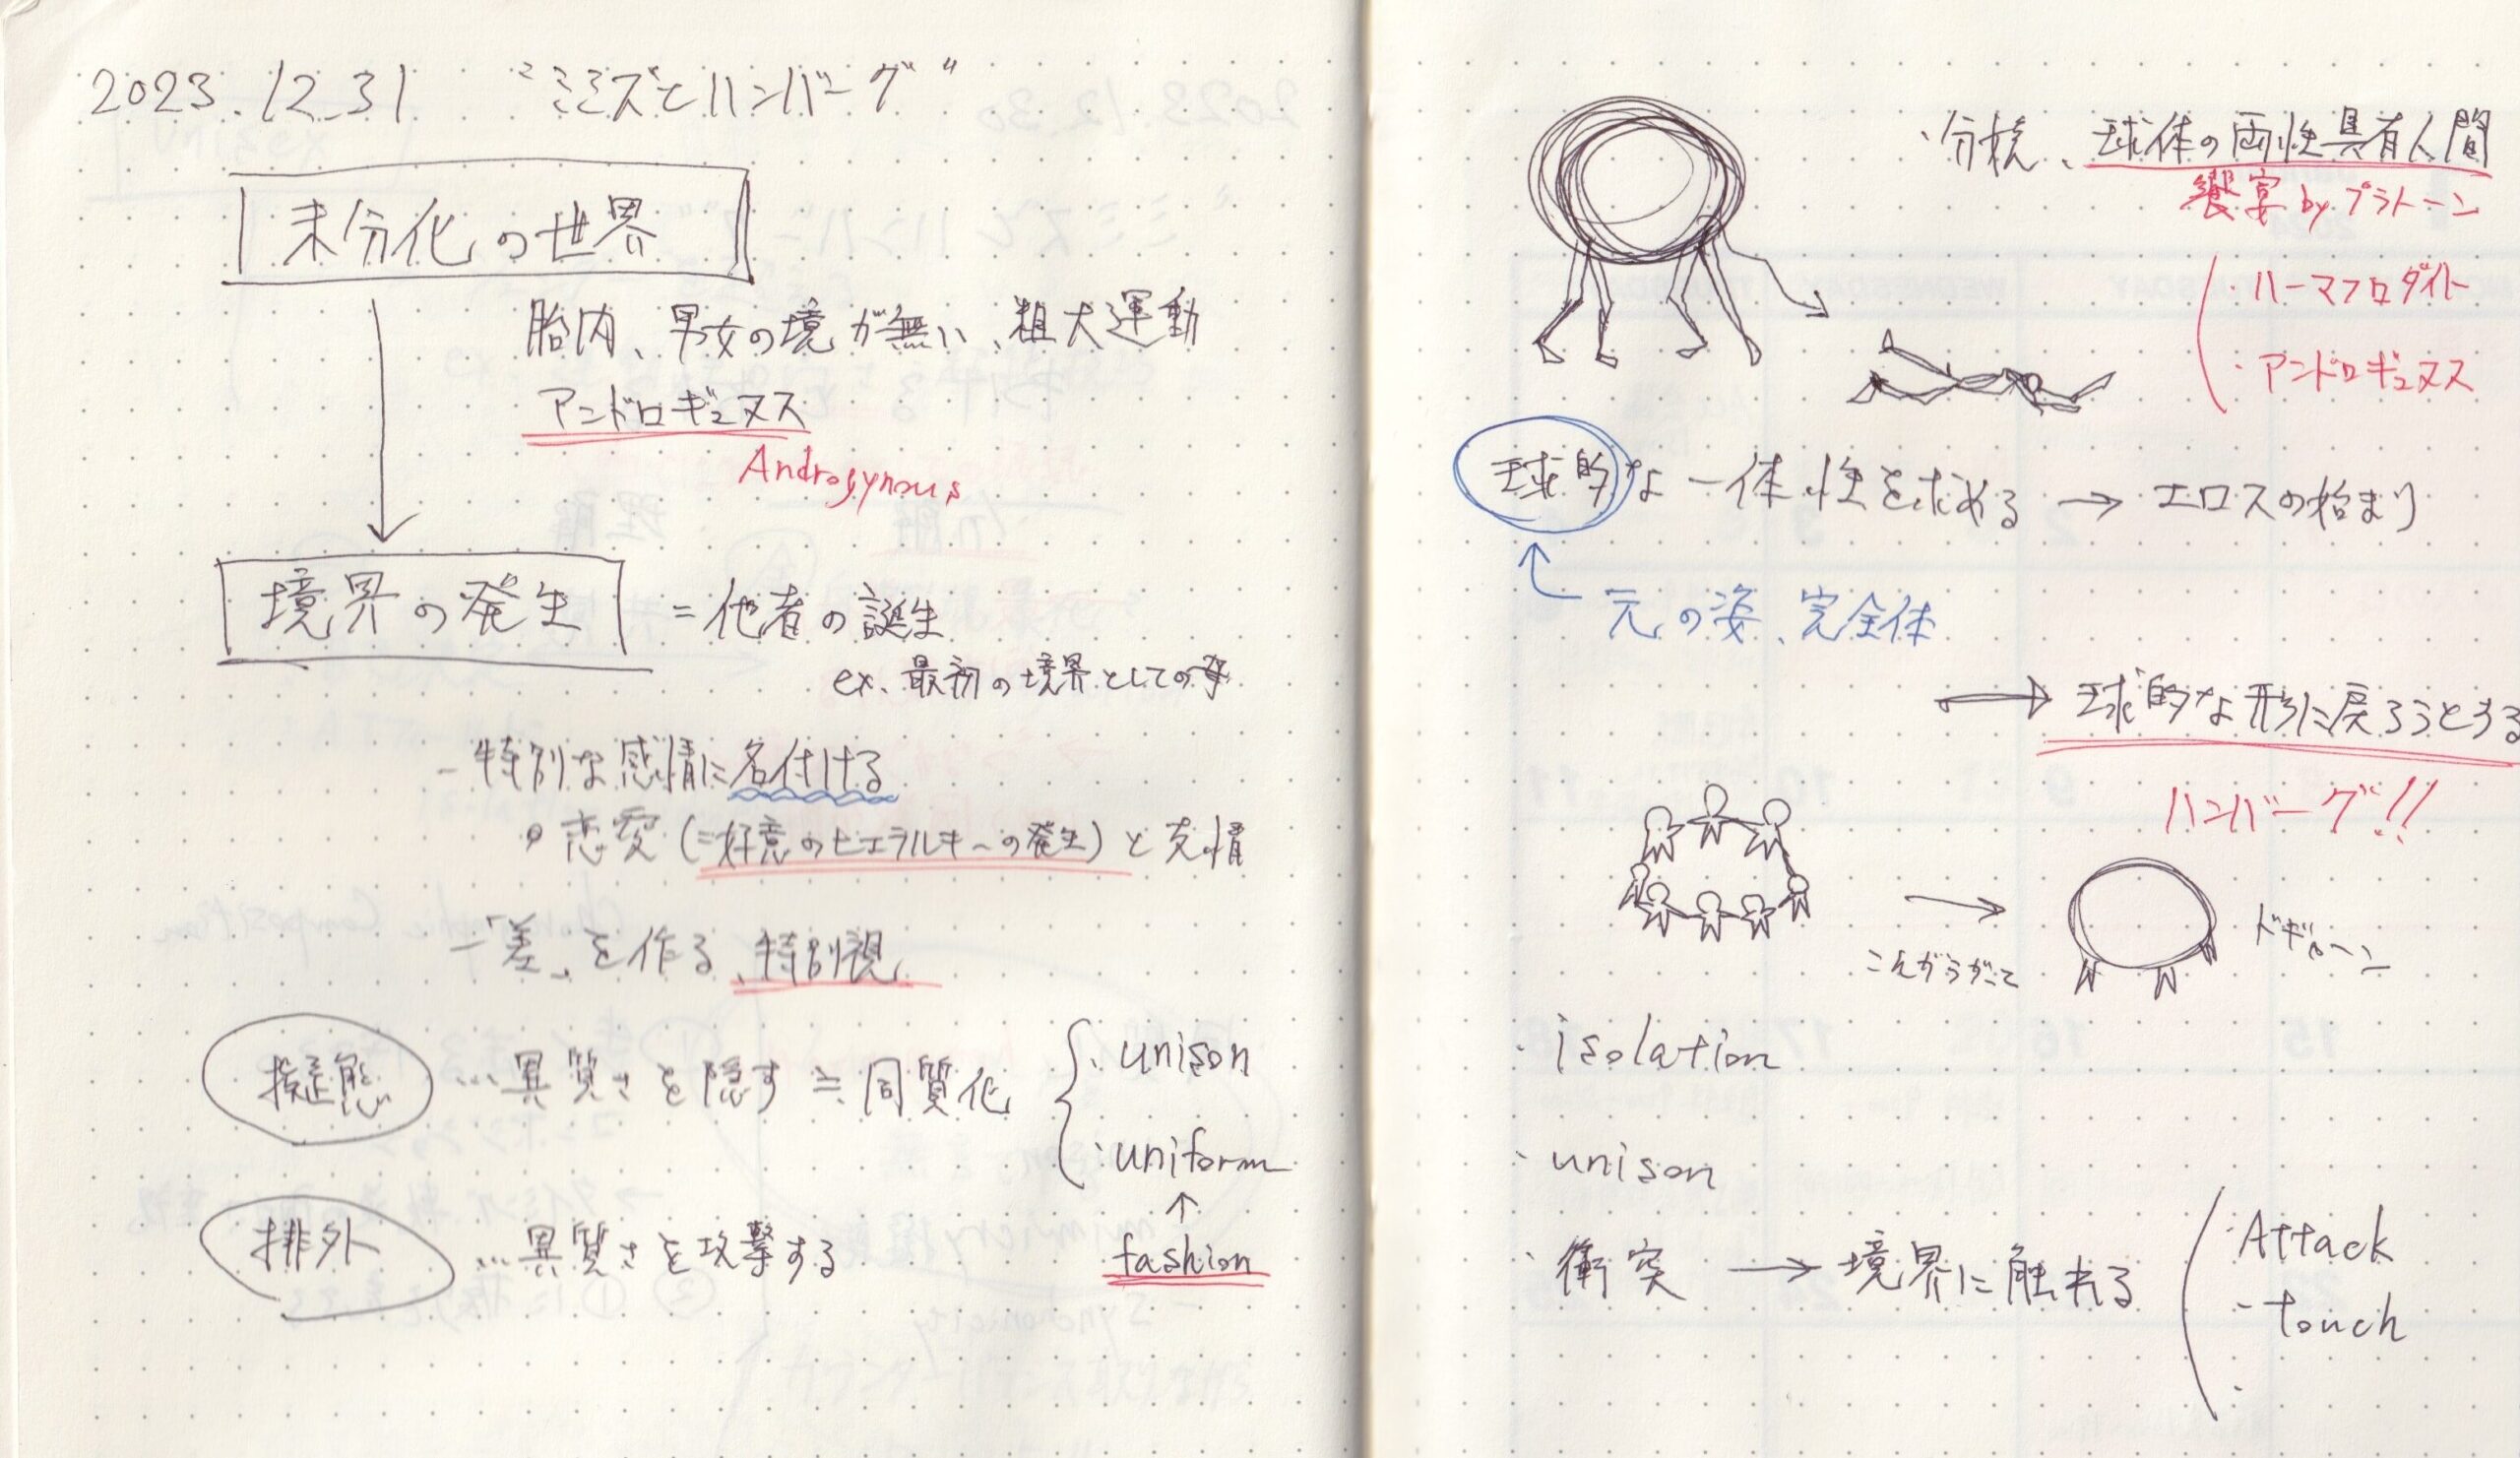 2023.12.31 "ミミズとハンバーグ"
未分化の世界
胎内、男女の境が無い、粗大運動
アンドロギュヌス
Androgynous
境界の発生 = 他者の誕生
ex. 最初の境界としての
- 特別な感情に名付ける
恋愛(=好意のヒエラルキーの発生)と友情
-「差」を作る、特別視
擬態 …異質さを隠す ≒ 同質化
・unison
・uniform
↑
fashion
排外 …異質さを攻撃する
・分裂、球体の両性具有人間
饗宴 by プラトーン
・ハーマフロダイト
・アンドロギュヌス
球的な一体性を求める → エロスの始まり
元の姿、完全体
→ 球的な形に戻ろうとする
ハンバーグ!!
→
こんがらがって
ドギューン
・isolation
・unison
・衝突 → 境界に触れる
・Attack
・touch
・